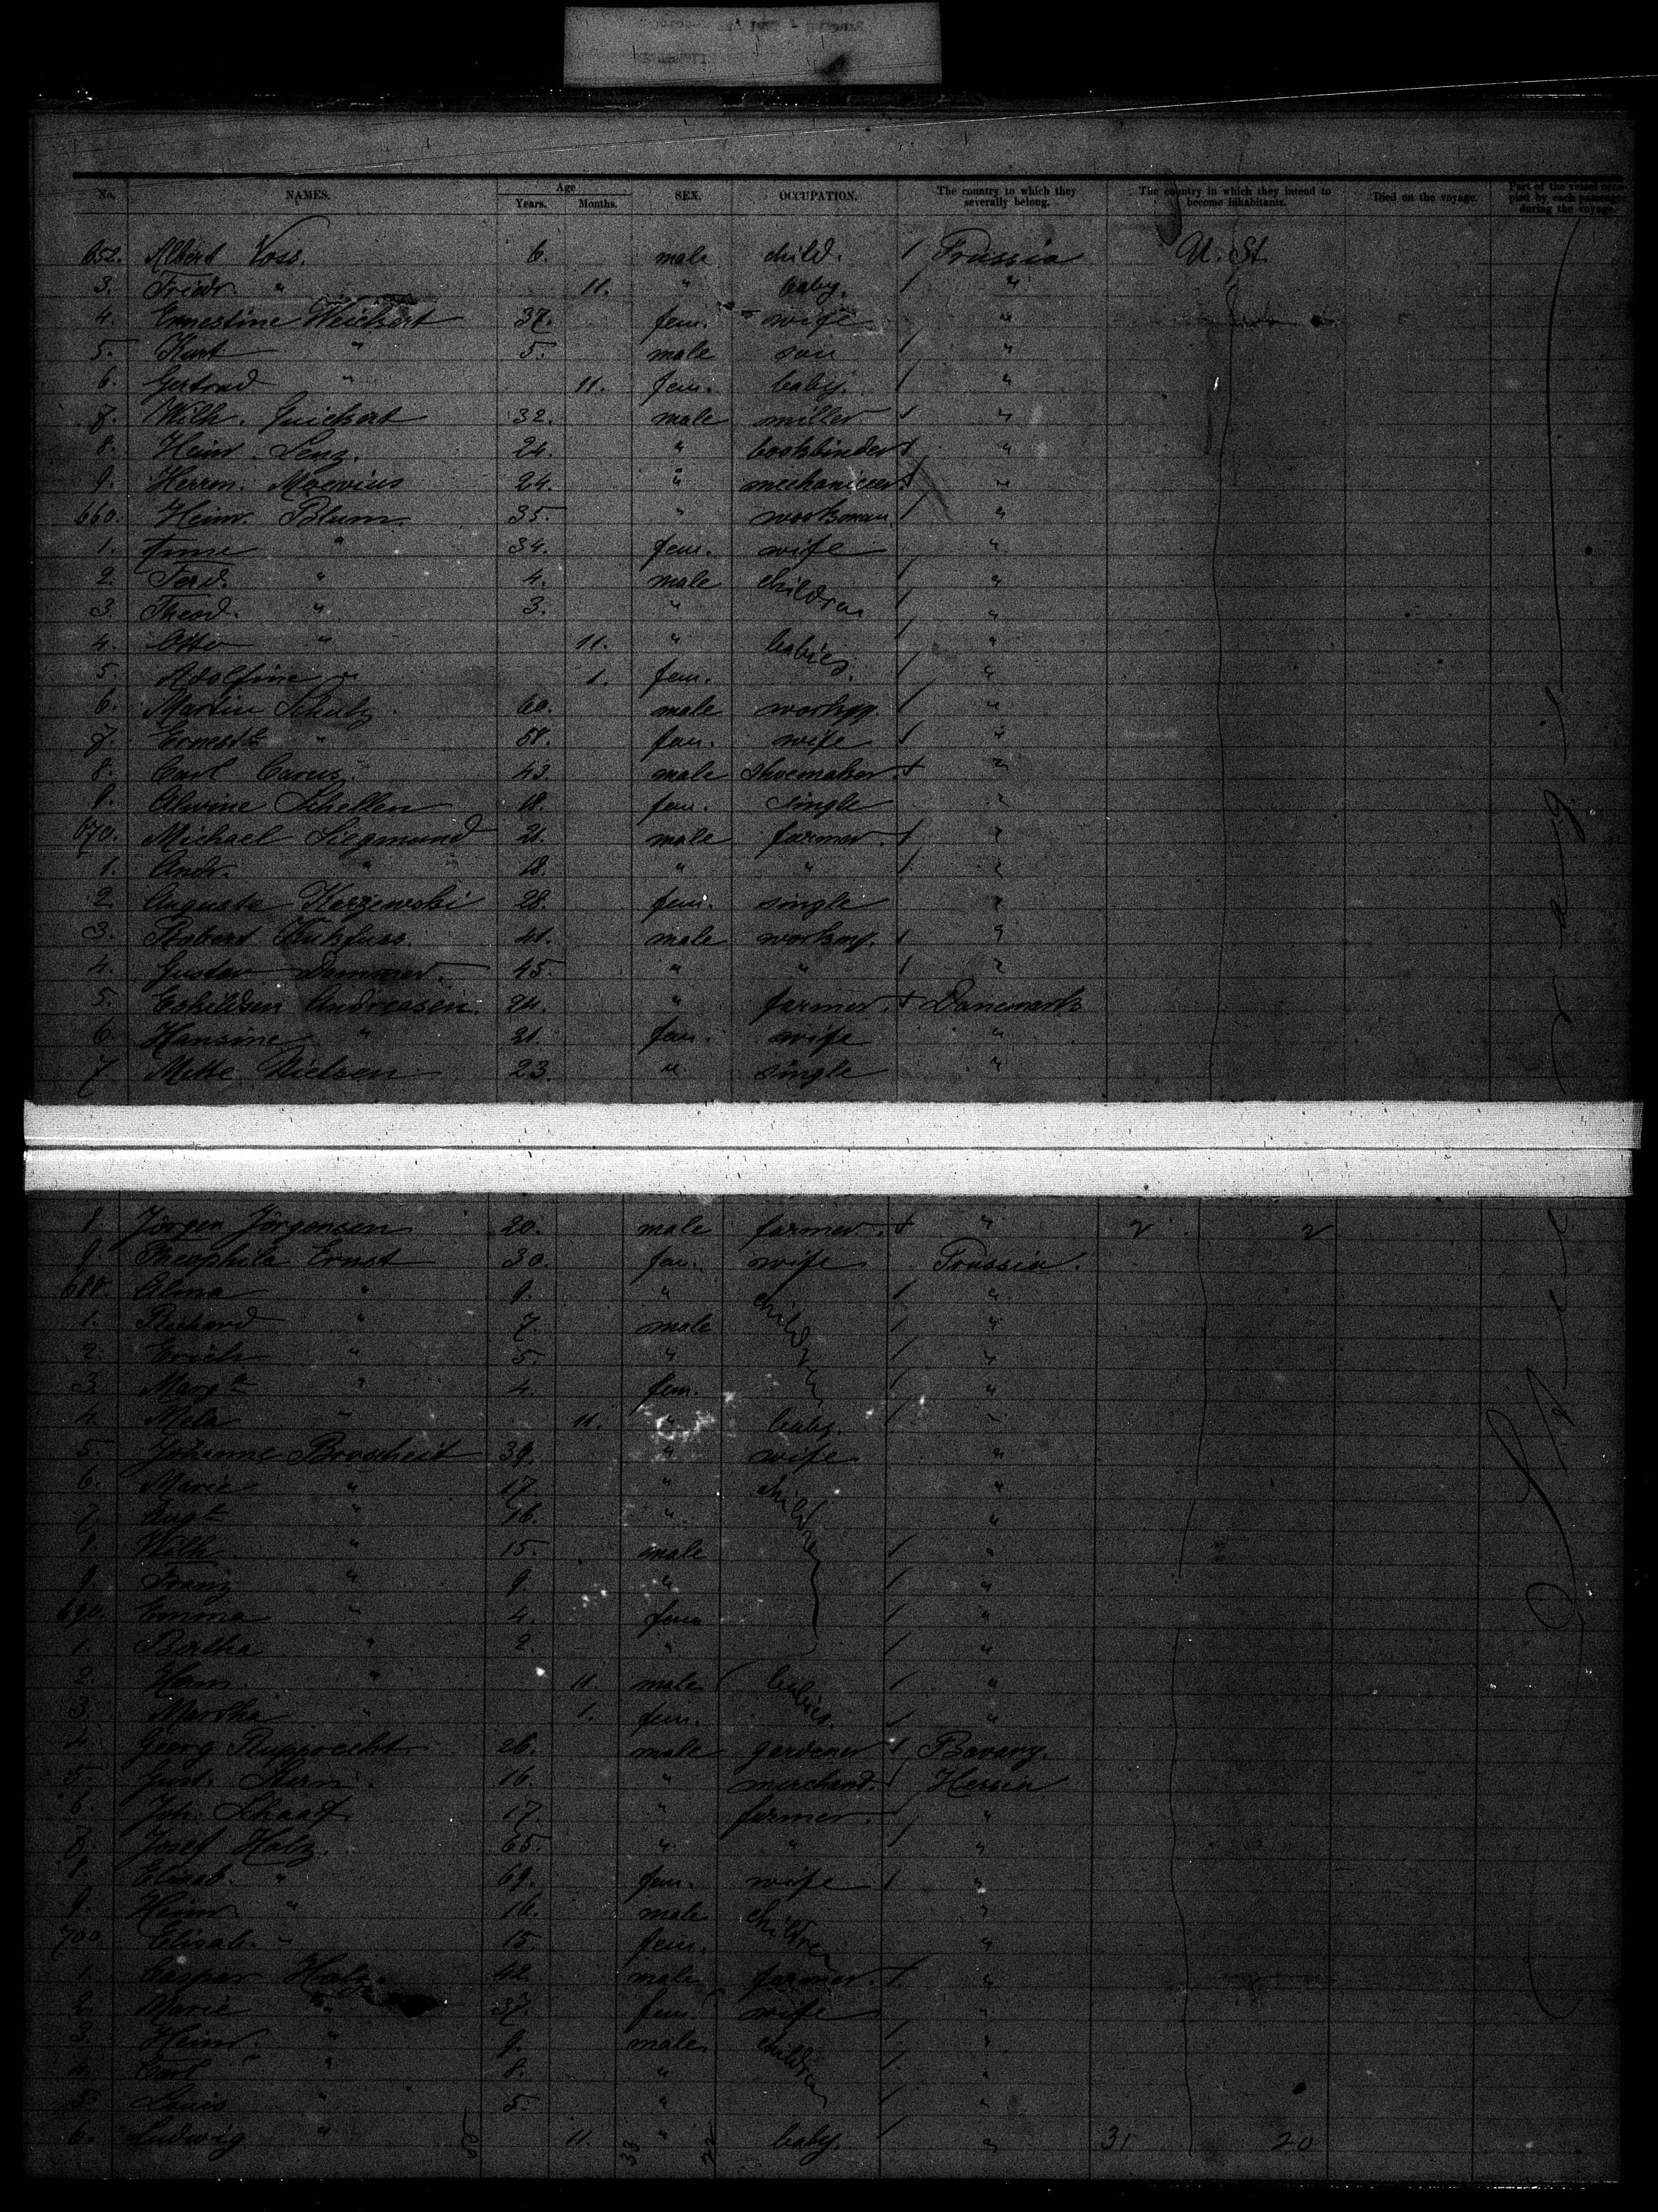 No. NAMES. Age Years. Months. SEX. OCCUPATION. The country to which they severally belong. The country in which they intend to become inhabitants. Died on the voyage. Part of the vessel occupied by each passenger during the voyage.
652. Albert Voss. 6. male child. / Prussia U. St.
3. Friedr. " 11. " baby. / "
4. Ernestine Weichert 37. fem. wife "
5. Kurt " 5. male son / "
6. Gertrud " 11. fem. baby. / "
7. Wilh. 32. male miller "
8. Heinr. Lenz. 24. " bookbinder "
9. Herrm. Moevius 24. " "
660. Heinr. Blum. 35. " workman / "
1. Anne " 34. fem. wife "
2. Ferd. " 4. male children / "
3. Theod. " 3. " / "
4. Otto " 11. " babies. / "
5. Adolfine " 1. fem. / "
6. Martin Schulz. 60. male / "
7. " fem. wife "
8. Carl 43. male shoemaker. "
9. Alwine Schellen 18. fem. single "
670. Michael Siegmund 21. male farmer. / "
1. Andr. " 18. " " / "
2. Auguste 28. fem. single "
3. Robert 41. male / "
4. Gustav Dammer. 45. " " / "
5. Eskildsen Andreasen. 24. " farmer. Danemark
6. Hansine " 21. fem. wife "
7 Mette Nielsen 23. " single "
8. Jörgen Jörgensen 20. male farmer. " 2 2
9. Theophila Ernst 30. fem. wife Prussia.
680. Alma " 9. " children / "
1. Richard " 7. male / "
2. Erich " 5. " / "
3. Marg " 4. fem. / "
4. Mela " 11. " baby. / "
5. Johanne Broscheit 39. " wife "
6. Marie " 17. " children "
7. Augte " 16. " "
8. Wilh. " 15. male / "
9. Franz " 9. " / "
690. Emma " 4. fem / "
1. Bertha " 2. " / "
2. Herm. " 11. male babies. / "
3. Martha " 1. fem. / "
4. Georg Rupprecht 26. male gardener Bavary.
5. Gust. Stern. 16. " merchand. Hessia
6. Joh. Schaaf. 17. " farmer. "
7. Josef Holz. 65. " " "
8. Elisab. " 69. fem. wife "
9. Heinr. " 16. male children "
700. Elisab. " 15. fem. "
1. Caspar Holz. 42. male farmer. "
2. Marie " 37. fem. wife "
3. Heinr. " 9. male children / "
4. Carl " 8. " / "
5. Louis " 5. " / "
6. Ludwig " 11. " baby. / " 31 20